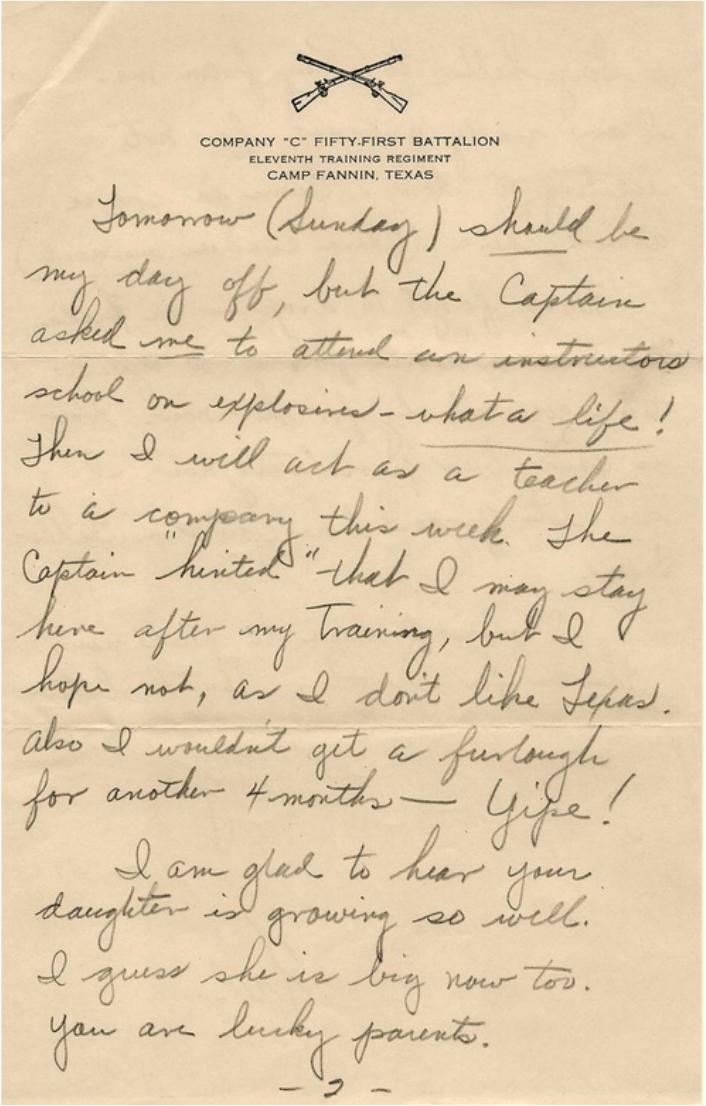 COMPANY "C" FIFTY-FIRST BATTALION
ELEVENTH TRAINING REGIMENT
CAMP FANNIN, TEXAS
Tomorrow (Sunday) should be
my day off, but the Captain
asked me to attend an instructors
school on explosives - what a life!
Then I will act as a teacher
to a company this week. The
Captain "hinted" that I may stay
here after my Training, but I
hope not, as I don't like Texas.
Also I wouldn't get a furlough
for another 4 months — Yipe!
I am glad to hear your
daughter is growing so well.
I guess she is big now too.
You are lucky parents.
- 2 -